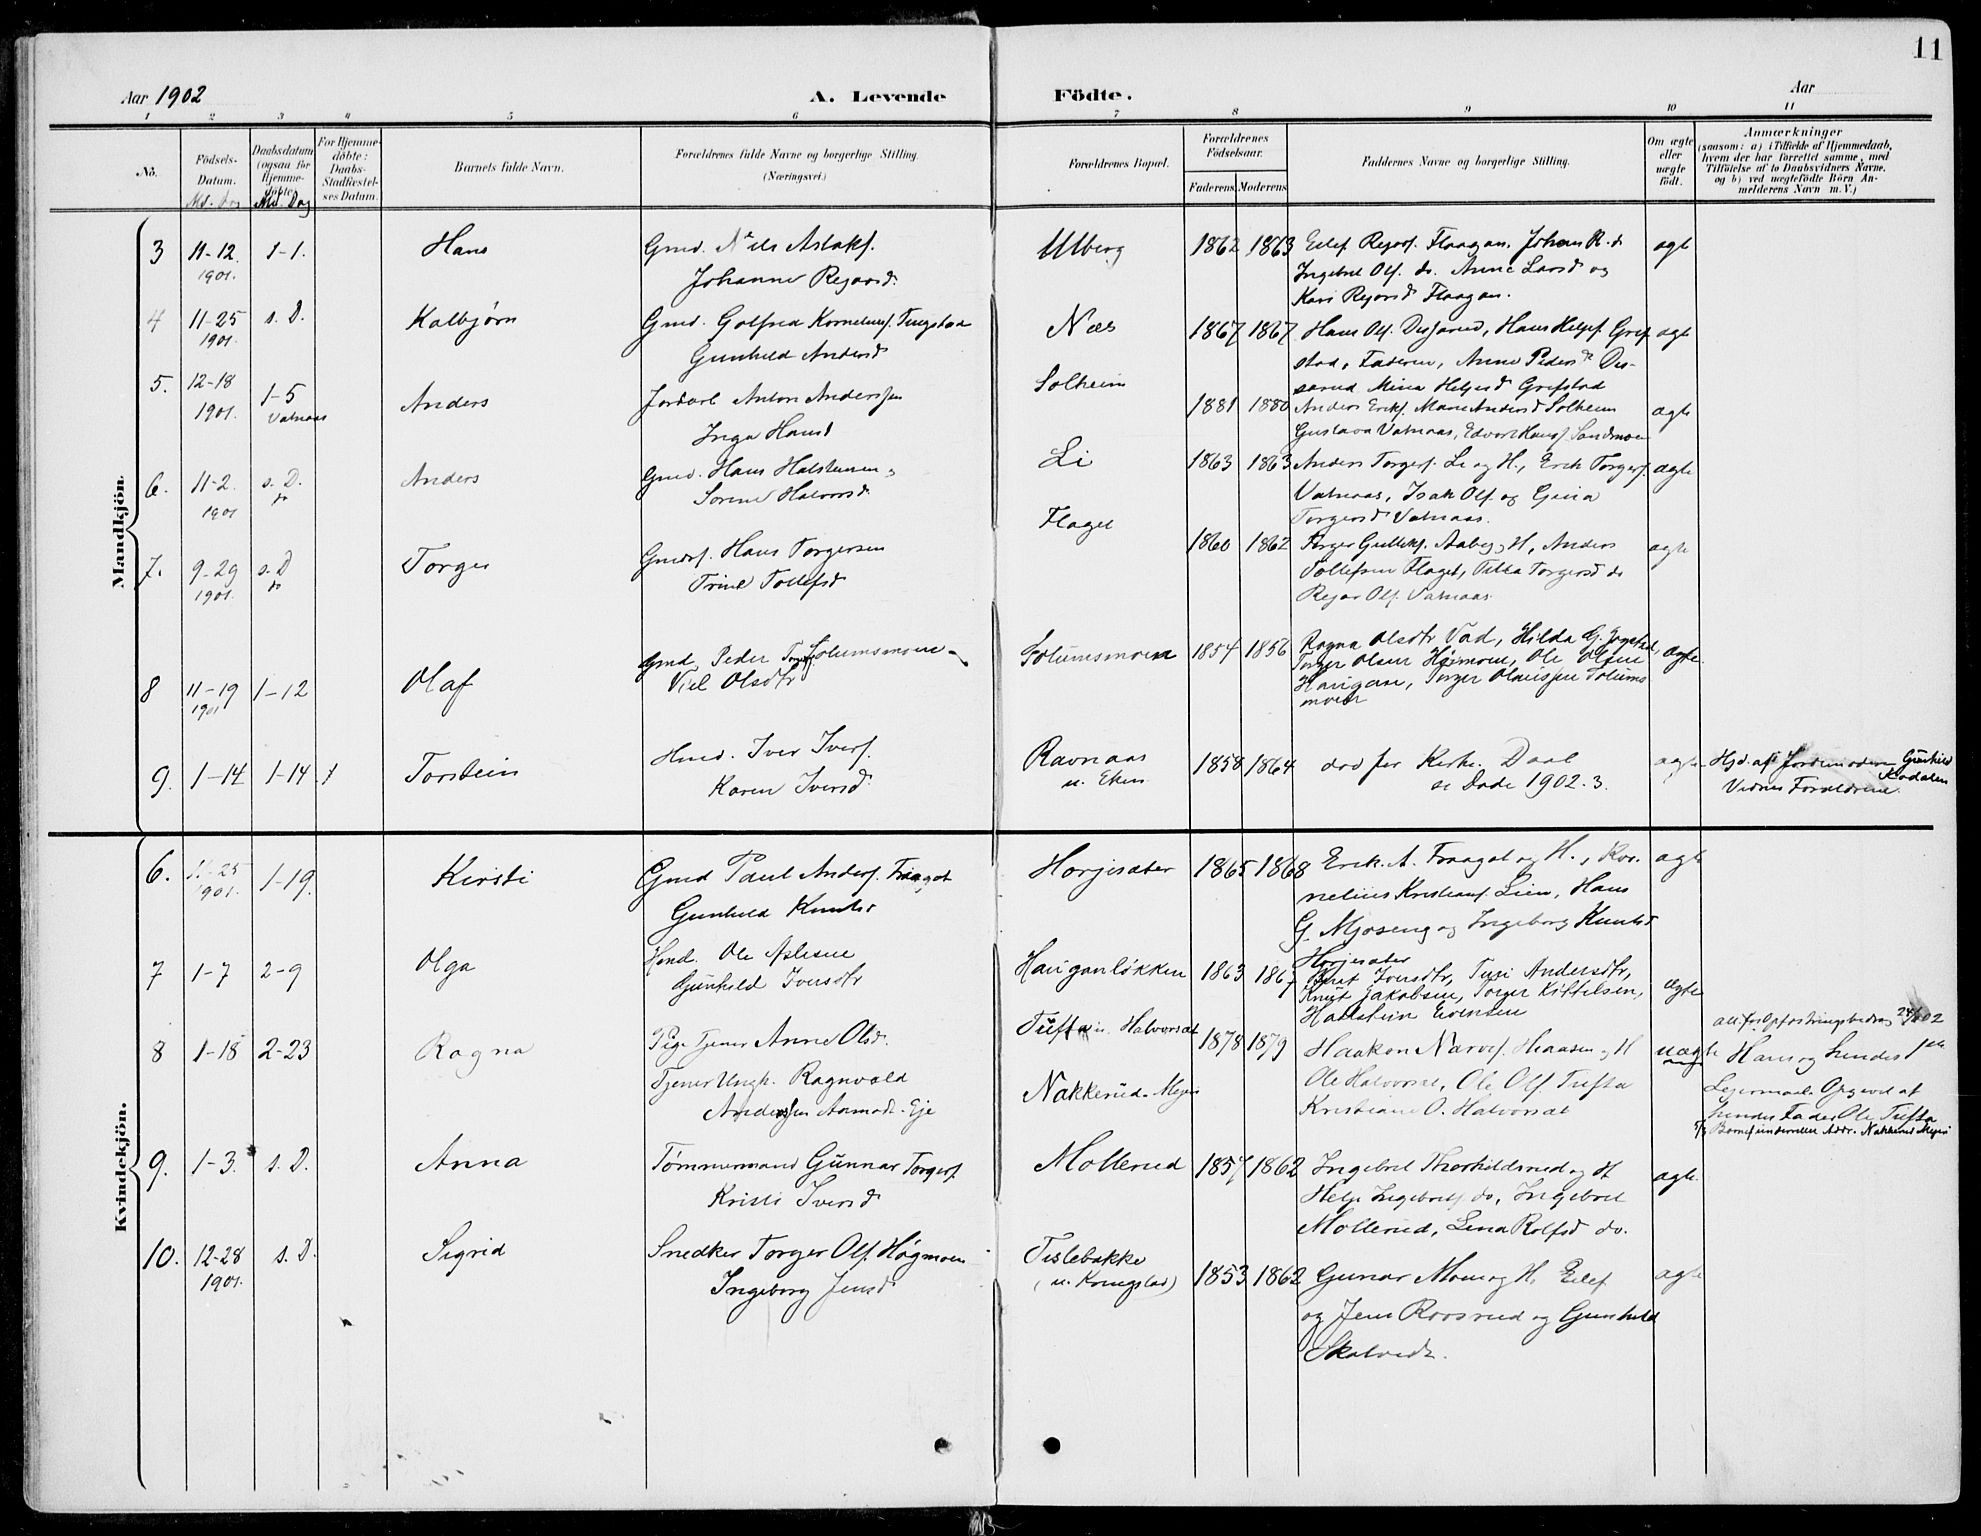 11
Aar 1902
A. Levende
Födte.
Aar
1 2 3 4 5 6 7 8 9 10 11
No.
Födsels-
Datum.
Md. Dag
Daabsdatum
(ogsaa for
Hjemme-
döbte)
Md. Dag
For Hjemme-
döbte:
Daabs-
Stadfæstel-
ses Datum.
Barnets fulde Navn.
Forældrenes fulde Navne og borgerlige Stilling.
(Næringsvei.)
Forældrenes Bopæl.
Forældrenes
Födselsaar.
Faderens. Moderens.
Faddernes Navne og borgerlige Stilling.
Om ægte
eller
uægte
födt.
Anmærkninger
(saasom: a) i Tilfælde af Hjemmedaab,
hvem der har forrettet samme, med
Tilföielse af to Daabsvidners Navne,
og b) ved uægtefödte Börn An-
melderens Navn m. V.)
Mandkjön.
3 11-12 1901. 1-1. Hans
Gmd. Nils Aslaks.
Johanne Regarsd.
Ulberg 1862 1863
Eilef Regars. Flaagan, Johan R. do
Ingebret Ols. do. Anne Larsd og
Kari Regarsd Flaagan.
ægte
4 11-25 1901. s. D. Kolbjørn
Gmd. Golfred Kornelius. Tingstad
Gunhild Andersd
Næs 1867 1867
Hans Ols. , Hans Helges. Gref
stad, Faderen, Anne Pedersd
Mina Helgesd Grefstad
ægte
5. 12-18 1901. 1-5 Vatnaas Anders
Anton Anderssen
Inga Hansd
Solheim 1881 1880
Anders Eriks. Marie Andersd Solheim
Gustava Vatnaas, Edvart Hans. Sandmoen
ægte
6. 11-2 1901 s. D. do Anders
Gmd. Hans Halstensen
Sorine Halvorsd.
Li 1863 1863
Anders Torgers. Li og H., Erik Torgers.
Vatnaas, Isak Ols. og Gina
Torgersd Vatnaas.
ægte
7. 9-29 1901. s. D do Torger
Hans Torgersen
Trine Tollefsd
Flaget 1860 1862
Torger Gulliks. Aaby og H, Anders
Tollefsen Flaget, Torgersd do
Regar Ols. Vatnaas
ægte
8 11-19 1901 1-12 Olaf
Gmd. Peder Torgers. Solumsmoen
Viel Olsdtr
Solumsmoen 1854 1856
Ragna Olsdtr Vad, Hilda G. Jogstad,
Torger Olsen Høimoen, Ole Olsen
Haugan, Torger Olaussen Solums
moen
ægte
9. 1-14 1-14 Torstein
Hmd. Iver Ivers.
Karen Iversd
Ravnaas
u. Eken
1858 1864
død før Kirke. Daab
se Døde 1902. 3.
ægte
Hjd. af Jordemoderen Gunhild
Kodalen
Vidner Forældrene.
Kvindekjön.
6. 11-25 1901. 1-19. Kirsti
Gmd Paul Anders. Fraagot
Gunhild Knutsd
Horgesæter 1865 1868
Erik A. Fraagot og H., Kor.
nelius Kristians. Lien, Hans
G. Mjøseng og Ingeborg Knutsd
Horgesæter
ægte
7 1-7 2-9 Olga
Hmd. Ole Aslesen
Gunhild Iversdtr
Hauganløkken 1863 1867
Berit Iversdtr, Turi Andersdtr,
Knut Jakobsen, Torger Kittelsen,
Halstein Evensen
ægte
8 1-18 2-23 Ragna
Pige Tjener Anne Olsd.
Tjener Ungk. Ragnvald
Anderssen Aamodt-Eje
Tufta u. Halvorsæt
Nakkerud. Modum
1878 1879
Haakon Narves. Haasen og H
Ole Halvorsæt, Ole Ols Tufta
Kristiane O. Halvorsæt
uægte
att. for Opfostringsbidrag 24/4 02
Hans og hendes 1ste
Leiermaal. Opgived af
hendes Fader Ole Tufta
9. 1-3. s. D. Anna
Tømmermand Gunnar Torgers.
Kristi Iversd
Mollerud 1857 1862
Ingebret Thorkildsrud og H
Helge Ingebrets. do, Ingebret
Mollerud, Lena Rolfsd do.
ægte
10. 12-28 1901. s. D. Sigrid
Snedker Torger Ols. Høgmoen
Ingeborg Jensd
Tislebakke
(u. Kongstad)
1853 1862
Gunar Moen og H, Eilef
og Jens Roosrud og Gunhild
Skalvedt.
ægte